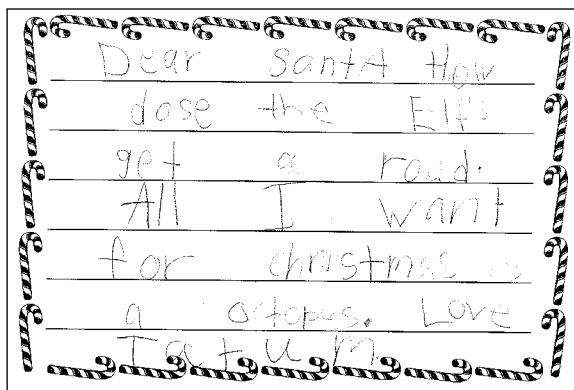 Dear SantA How
dose the Elf's
get a roud.
All I want
for christmas is
a octopus. Love
Tatum